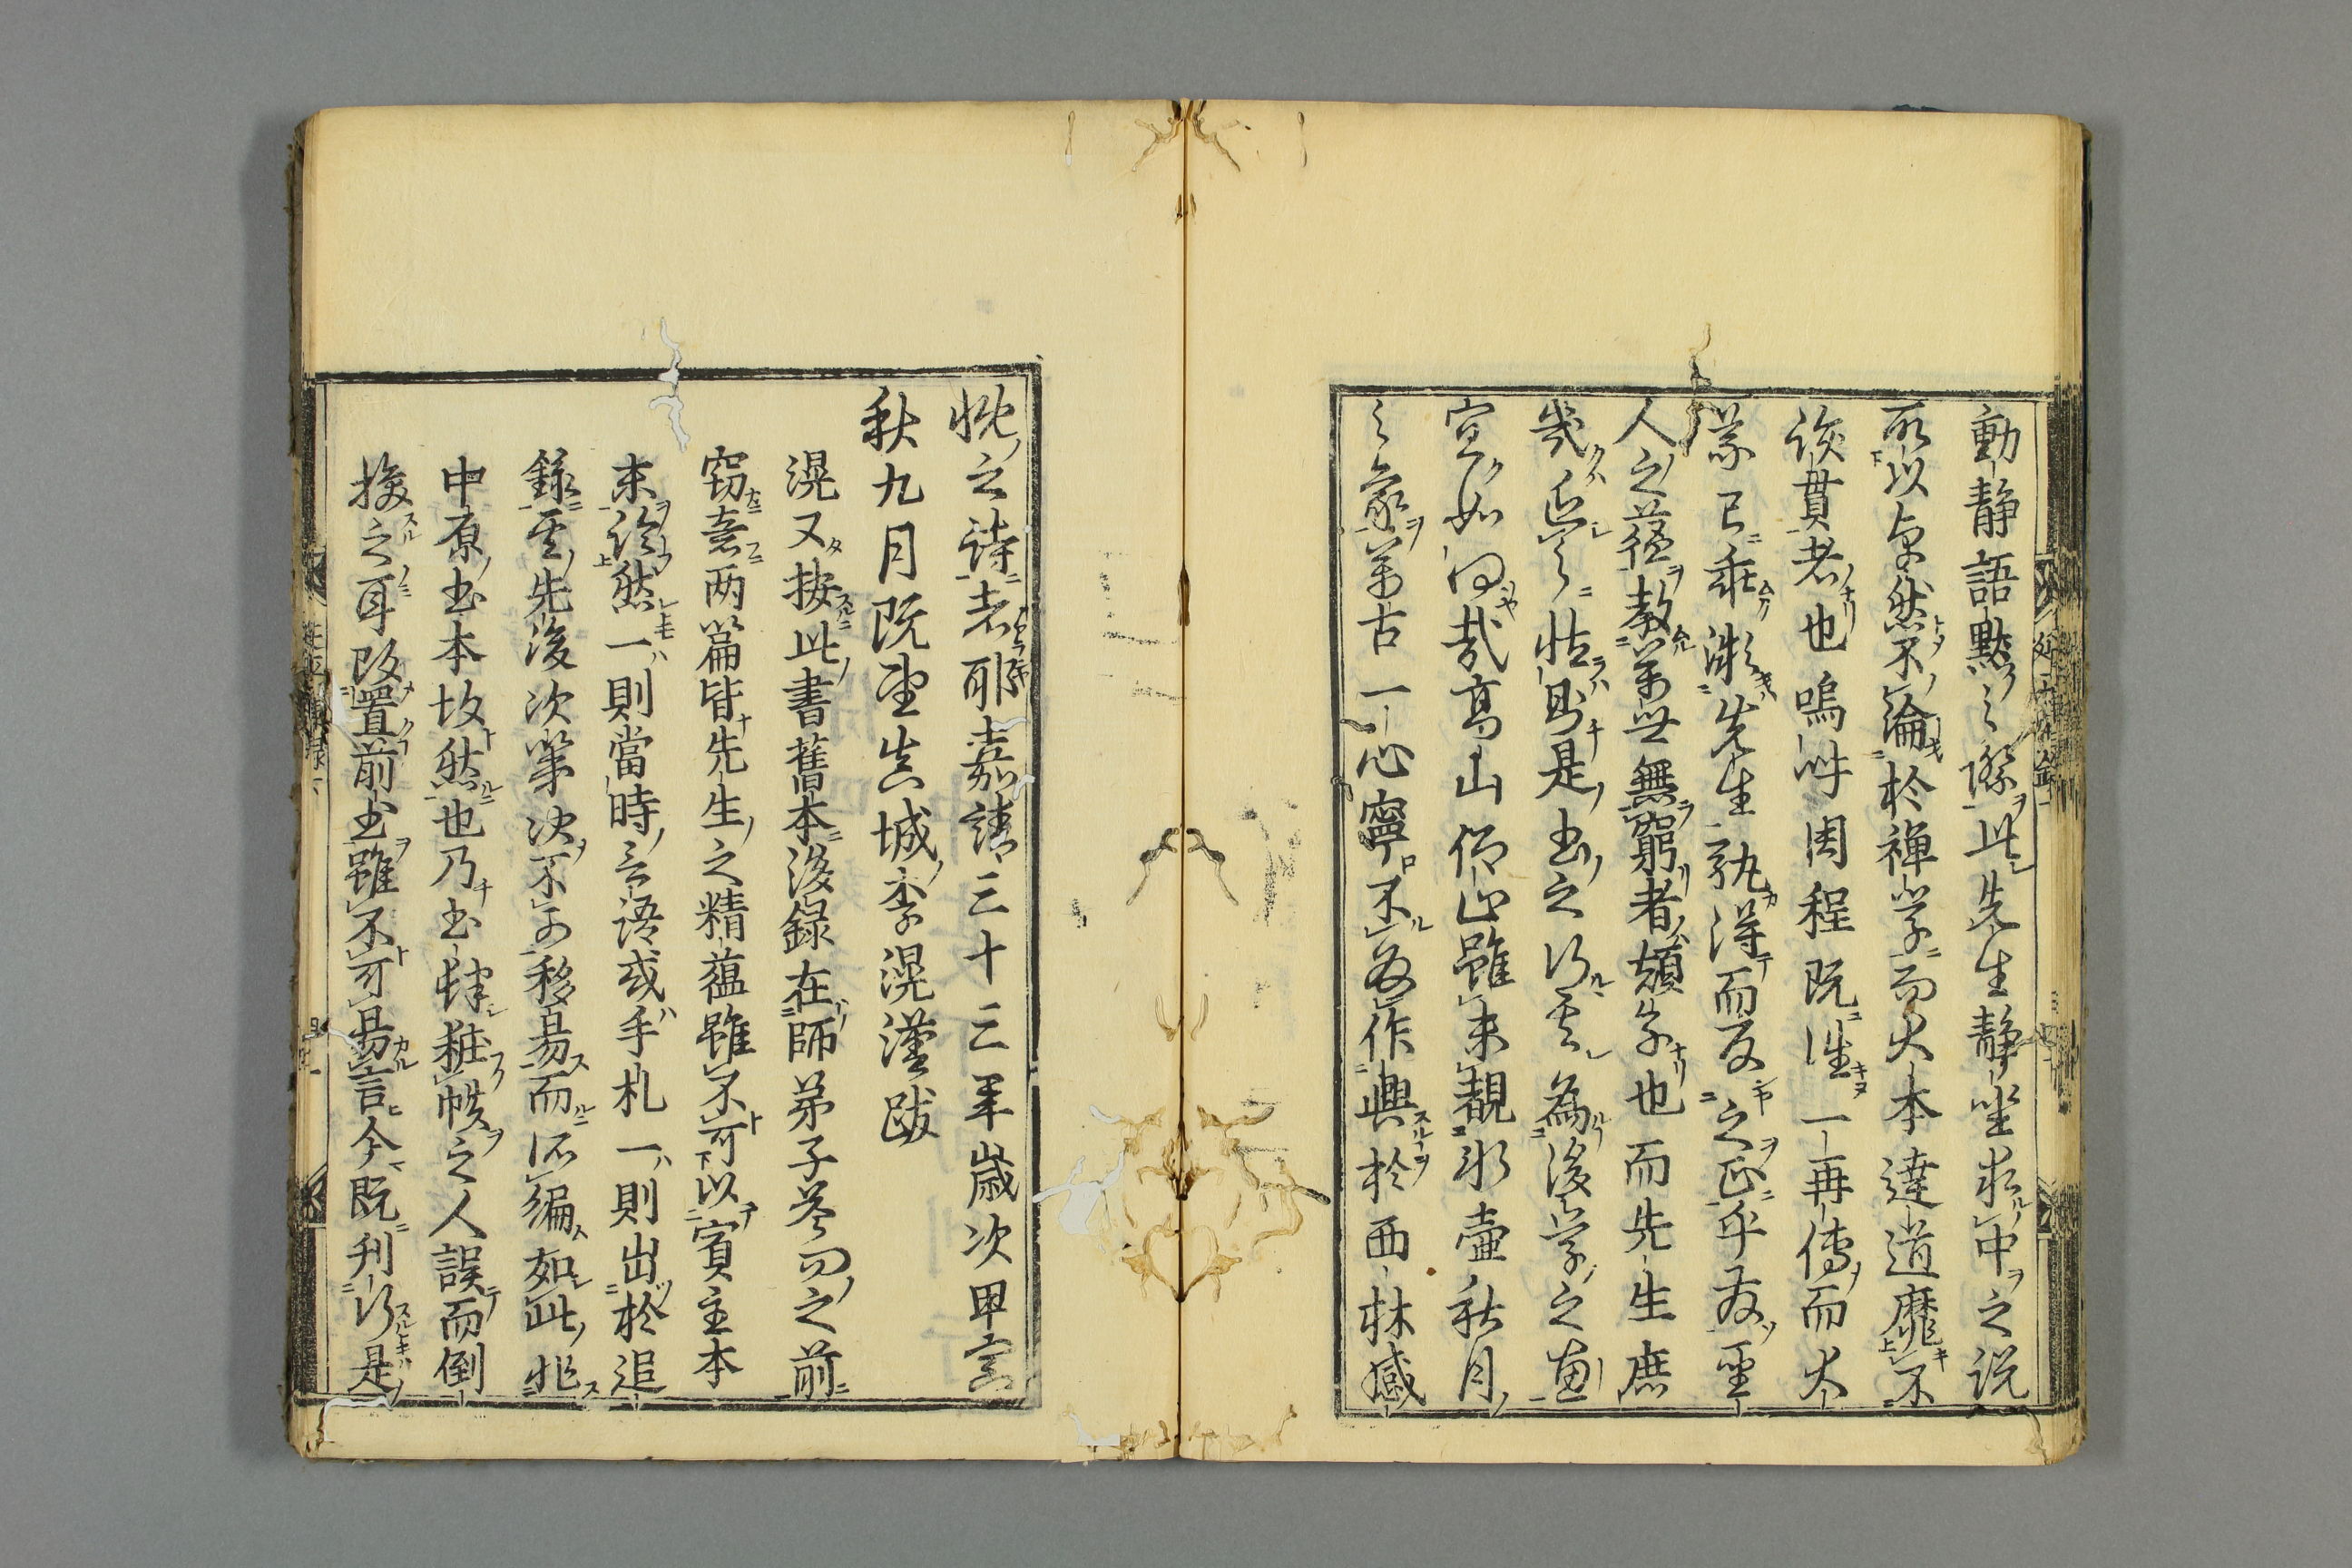 動静語黙之際此先生静坐求中之説
所以卓然不淪於禅学而大本達道靡不
該貫者也嗚呼周程既往一再傳而大
業已乖微先生孰得而反之正乎夫聖
人之蘊教萬世無窮者顔子也而先生庶
幾近之恠是書之行其為後学之惠
宜如何哉髙山仰止雖未覩氷壺秋月
之象萬古一心寧不為作興於西林感
怳之詩者耶嘉靖三十三年歳次甲寅
秋九月既望真城李滉謹跋
滉又按此書舊本後録在師弟子荅問之前
窃意两篇皆先生之精蘊雖不可以賓主本
末論然一則當時言語或手札一則出於追
録其先後次第決不可移易而所編如此非
中原書本故然也乃書肆粧帙之人誤而倒
換之耳改置前書雖不可易言今既刊行是
延平答問録